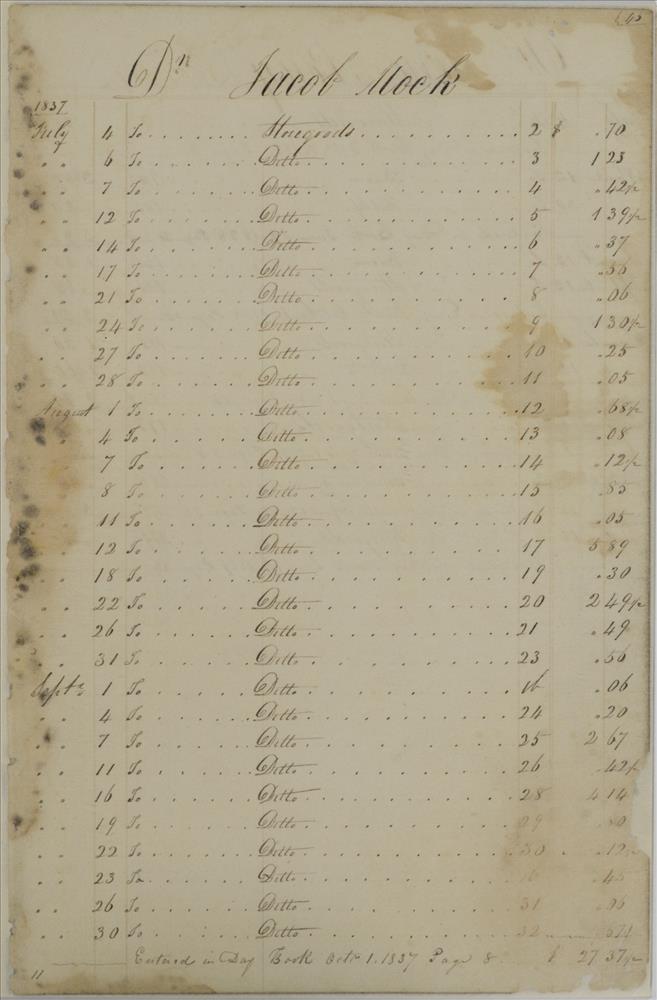 Dr Jacob Mock
1837
July 4 To . . . . . . . Storegoods . . . . . . . . . . 2 $ .70
" " 6 To . . . . . . Ditto . . . . . . . . . . 3 1 23
" " 7 To . . . . . . Ditto . . . . . . . . . . 4 .42½
" " 12 To . . . . . . Ditto . . . . . . . . . . 5 1 39½
" " 14 To . . . . . . Ditto . . . . . . . . . . 6 .37
" " 17 To . . . . . . Ditto . . . . . . . . . . 7 .56
" " 21 To . . . . . . Ditto . . . . . . . . . . 8 .06
" " 24 To . . . . . . Ditto . . . . . . . . . . 9 1 30½
" " 27 To . . . . . . Ditto . . . . . . . . . . 10 .25
" " 28 To . . . . . . Ditto . . . . . . . . . . 11 .05
August 1 To . . . . . . Ditto . . . . . . . . . . 12 .68½
" " 4 To . . . . . . Ditto . . . . . . . . . . 13 .08
" " 7 To . . . . . . Ditto . . . . . . . . . . 14 .12½
" " 8 To . . . . . . Ditto . . . . . . . . . . 15 .85
" " 11 To . . . . . . Ditto . . . . . . . . . . 16 .05
" " 12 To . . . . . . Ditto . . . . . . . . . . 17 5 89
" " 18 To . . . . . . Ditto . . . . . . . . . . 19 .30
" " 22 To . . . . . . Ditto . . . . . . . . . . 20 2 49½
" " 26 To . . . . . . Ditto . . . . . . . . . . 21 .49
" " 31 To . . . . . . Ditto . . . . . . . . . . 23 .56
Septr 1 To . . . . . . Ditto . . . . . . . . . . 16 .06
" " 4 To . . . . . . Ditto . . . . . . . . . . 24 .20
" " 7 To . . . . . . Ditto . . . . . . . . . . 25 2 67
" " 11 To . . . . . . Ditto . . . . . . . . . . 26 .42½
" " 16 To . . . . . . Ditto . . . . . . . . . . 28 4 14
" " 19 To . . . . . . Ditto . . . . . . . . . . 29
" " 22 To . . . . . . Ditto . . . . . . . . . . 30 .12½
" " 23 To . . . . . . Ditto . . . . . . . . . .
" " 26 To . . . . . . Ditto . . . . . . . . . . 31 .06
" " 30 To . . . . . . Ditto . . . . . . . . . . 32
Entered in Day Book Octr 1. 1837 Page 8 $ 27 37½
11